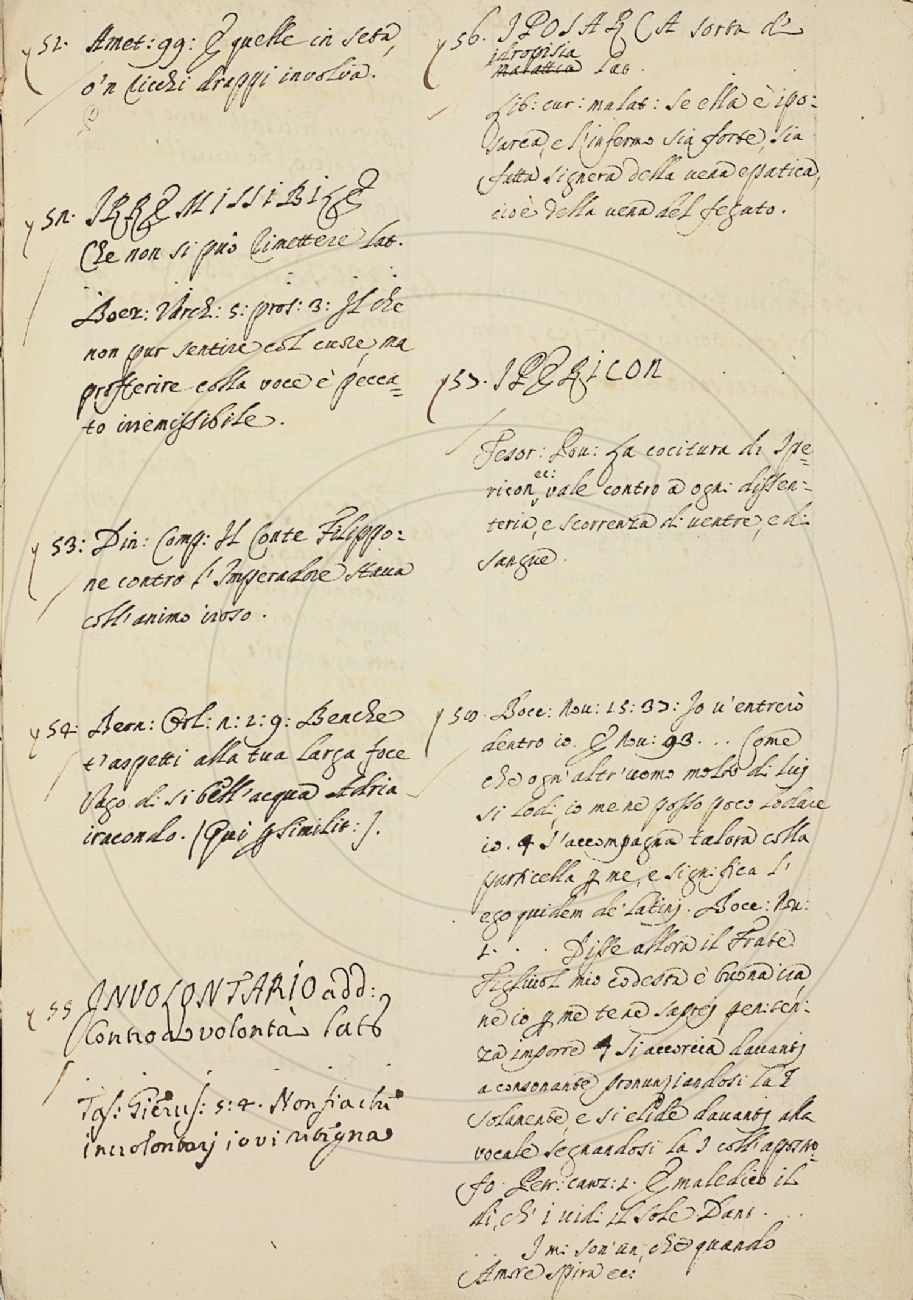 51. Amet: 99: E quelle in seta,
o 'n ricchi drappi involva.
52. IRREMISSIBILE
Che non si può rimettere lat.
. . . .
Boez: Varch: 5: pros: 3: Il che
non pur sentire col cuore, ma
profferire colla voce è pecca=
to irremissibile.
53: Din: Comp: Il Conte Filippo=
ne contro l'Imperadore stava
coll'animo iroso.
54: Bern: Orl: n: 2: 9: Benche
t'aspetti alla tua larga foce
Vago di sì bell'acqua Adria
iracondo. (Qui p similit:).
55 INVOLONTARIO add:
Contro a volontà lat
. . . .
Tas: Gierus: 5: 4. Non fia ch'
involontarj io vi ritegna
56. IPOSARCA sorta di
idropisia
malattia lat.
Lib: cur: malat: se ella è ipo=
sarca, e l'infermo sia forte, sia
fatta signera della vena epatica,
cioè della vena del fegato.
57. IPERICON
Tesor: Pov: La cocitura di Ipe=
ricon ec: vale contro a ogni dissen=
teria, e scorrenza di ventre, e di
sangue.
58. Bocc: Nov: 15: 37: Io v'entrerò
dentro io. E Nov: 93. .. Come
che ogn'altr'uomo molto di lui
si lodi, io me ne posso poco lodare
io. S'accompagna talora colla
particella p me, e significa l'
ego quidem de' latini. Bocc: Nov:
1. . . . Disse allora il Frate
Figliuol mio codesta è buona ira
ne io p me te ne saprei peniten=
za imporre Si accorcia davanti
a consonante pronunziandosi la I
solamente, e si elide davanti alla
vocale segnandosi la I coll'apostro=
fo. Petr: canz: 1. E maledico il
dì, ch' i vidi il sole Dant. . .
. . I mi son'un, che quando
Amore spira ec: